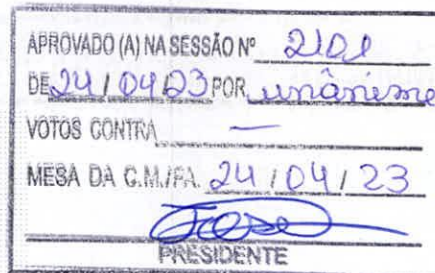 APROVADO (A) NA SESSÃO Nº 2101
DE 24 / 04 / 23 POR unânime
VOTOS CONTRA —
MESA DA C.M./PA. 24 / 04 / 23
PRESIDENTE